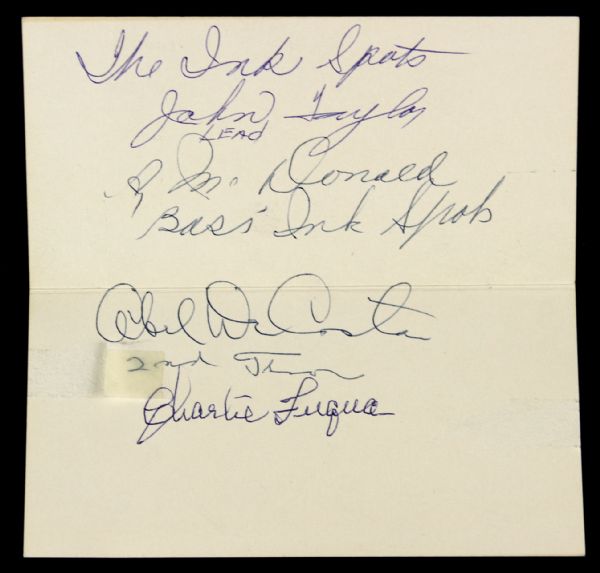 The Ink Spots
John Taylor
LEAD
J. M. Donald
Bass Ink Spots
Abel DeCosta
2nd Tenor
Charlie Fuqua